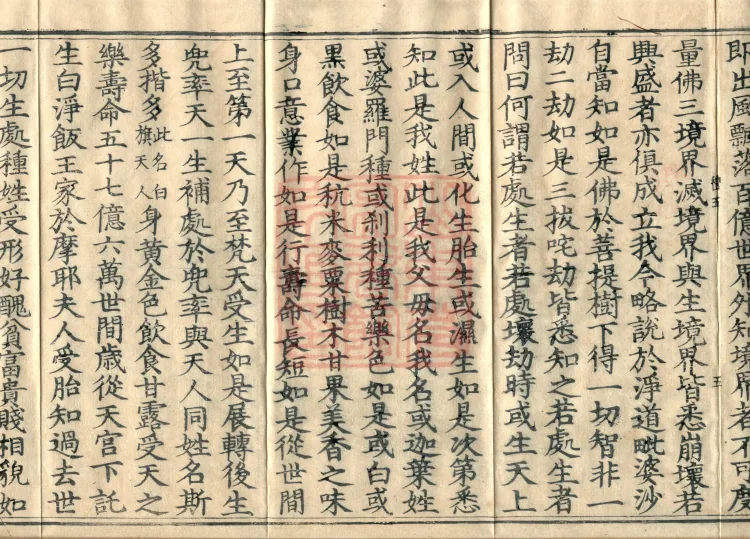 即出風飄落百億世界外知境界者不可度
量佛三境界滅境界與生境界皆悉崩壞若
興盛者亦俱成立我今略說於淨道毗婆沙
自當知如是佛於菩提樹下得一切智非一
劫二劫如是三拔咤劫皆悉知之若處生者
問曰何謂若處生者若處壞劫時或生天上
或入人間或化生胎生或濕生如是次第悉
知此是我姓此是我父毋名我名或迦葉姓
或婆羅門種或刹利種苦樂色如是或白或
黑飲食如是秔米麥粟樹木甘果美香之味
身口意業作如是行壽命長短如是從世間
上至第一天乃至梵天受生如是展轉後生
兜率天一生補處於兜率與天人同姓名斯
多揩多此名白旗天人身黃金色飲食甘露受天之
樂壽命五十七億六萬世間歲從天宮下託
生白淨飯王家於摩耶夫人受胎知過去世
一切生處種姓受形好醜貧富貴賤相貌如